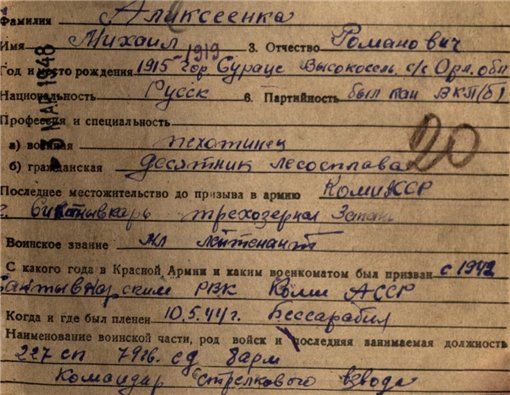 Фамилия Аликсеенка
Имя Михаил 1919 3. Отчество Романович
Год и место рождения 1915 гор Сураце Высокосель. с/с Орл. обл
Национальность Русск 6. Партийность был кан ВКП(б)
Профессия и специальность
а) военная пехотинец
б) гражданская десятник лесосплава
20
Последнее местожительство до призыва в армию Коми АССР
г. Сиктывкарь трехозерная Запань
Воинское звание Мл лейтенант
С какого года в Красной Армии и каким военкоматом был призван с 1942
РВК Коми АССР
Когда и где был пленен 10.5.44 г. Бессарабия
Наименование воинской части, род войск и последняя занимаемая должность
227 сп 79 гв. сд 8 арм
Командир стрелкового взвода
МАР 1948